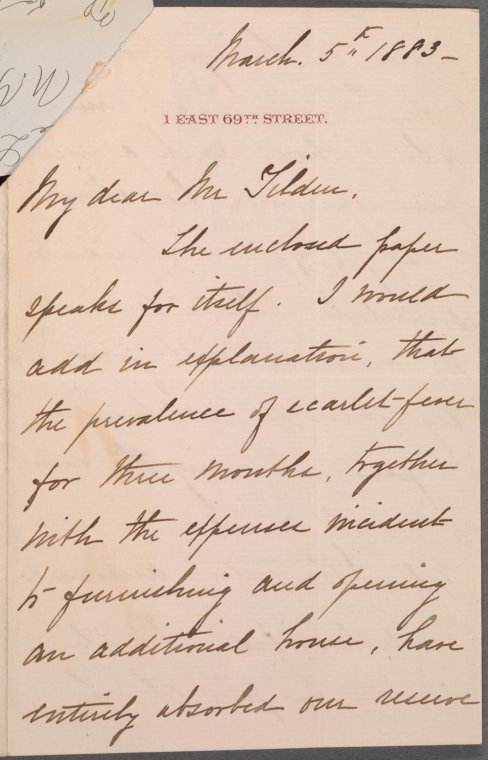 March. 5th 1883-
1 EAST 69TH STREET.
My dear Mr Tilden,
The enclosed paper
speaks for itself. I would
add in explanation, that
the prevalence of scarlet-fever
for three months, together
with the expenses incident
to furnishing and opening
an additional house, have
entirely absorbed our reserve